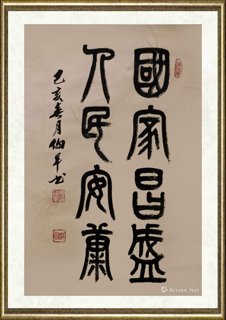 國家昌盛
人民安康
己亥春月伯年书
Artron.Net